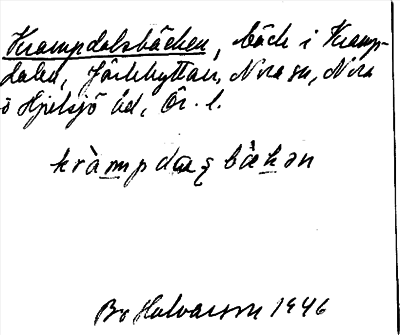 Krampdalsbäcken, bäck i Kramp-
dalen, Järlehyttan, Nora sn, Nora
o Hjulsjö bd, Ör. l.
kràmpdaꞩbäkən
Bo Halvarson 1946